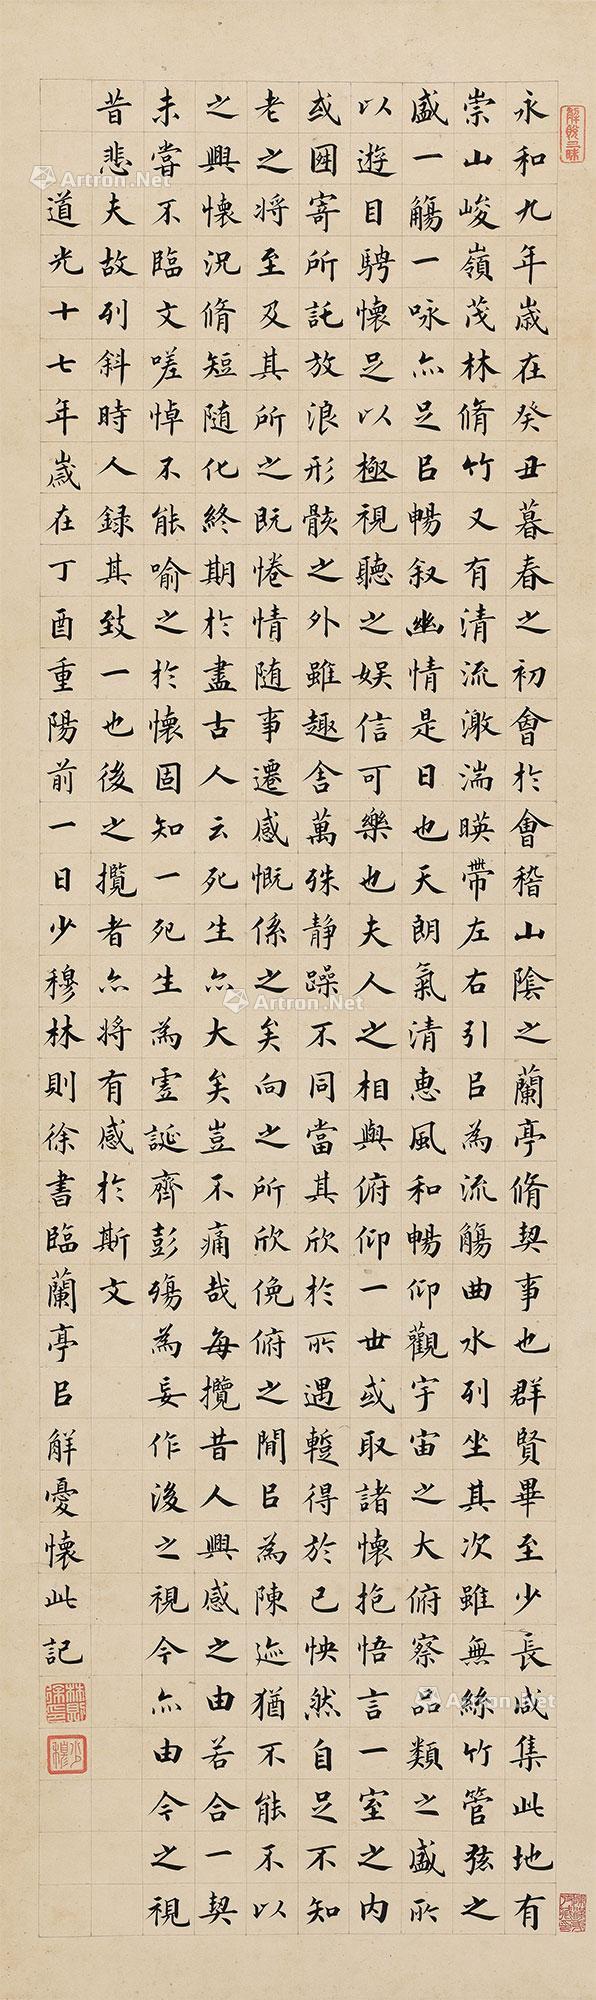 永和九年歲在癸丑暮春之初會於會稽山陰之蘭亭脩契事也群賢畢至少長咸集此地有
崇山峻嶺茂林脩竹又有清流激湍暎帶左右引㠯為流觴曲水列坐其次雖無絲竹管弦之
盛一觴一咏亦足㠯暢叙幽情是日也天朗氣清惠風和暢仰觀宇宙之大俯察品類之盛所
以遊目騁懷足以極視聽之娛信可樂也夫人之相與俯仰一世或取諸懷抱悟言一室之內
或因寄所託放浪形骸之外雖趣舍萬殊静躁不同當其欣於所遇蹔得於己怏然自足不知
老之將至及其所之既惓情随事遷感慨係之矣向之所欣俛俯之間㠯為陳迹猶不能不以
之興懷況脩短随化終期於盡古人云死生亦大矣豈不痛哉每攬昔人興感之由若合一契
未嘗不臨文嗟悼不能喻之於懷固知一死生為虛誕齊彭殤為妄作後之視今亦由今之視
昔悲夫故列斜時人録其致一也後之攬者亦將有感於斯文
道光十七年歲在丁酉重陽前一日少穆林則徐書臨蘭亭㠯解憂懷此記
少穆
Artron.Net
Artron.Net
Artron.Net
Artron.Net